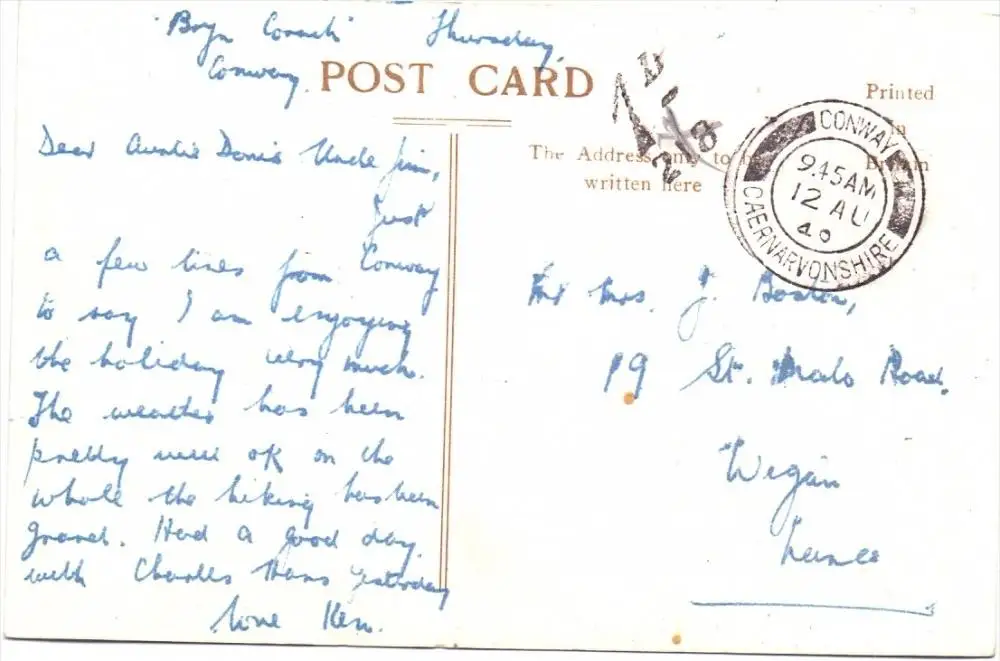 Bryn Corach Thursday,
Conway.
POST CARD
Printed
in
Britain
The Address only to be
written here
CONWAY
9.45AM
12 AU
40
CAERNARVONSHIRE
Dear Auntie Doris Uncle Jim,
Just
a few lines from Conway
to say I am enjoying
the holiday very much.
The weather has been
pretty well OK on the
whole the hiking has been
grand. Had a good day
with Charles Hans yesterday
love Ken.
Mr Mrs. J. Boston,
19 St. Malo Road.
Wigan
Lancs